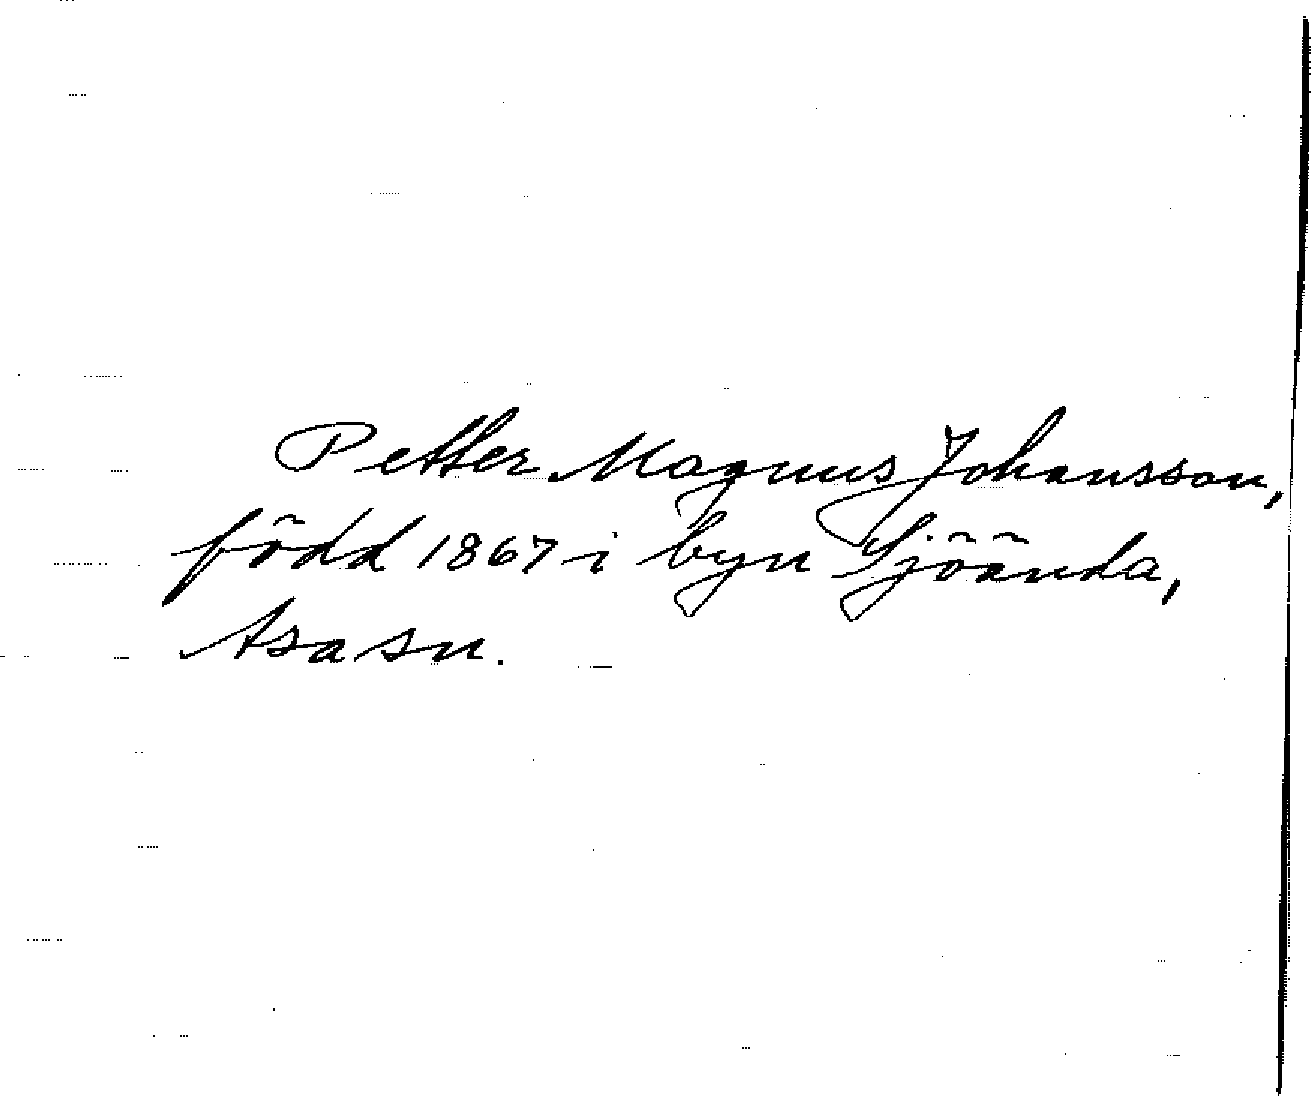 Petter Magnus Johansson,
född 1867 i byn Sjöända,
Asa sn.